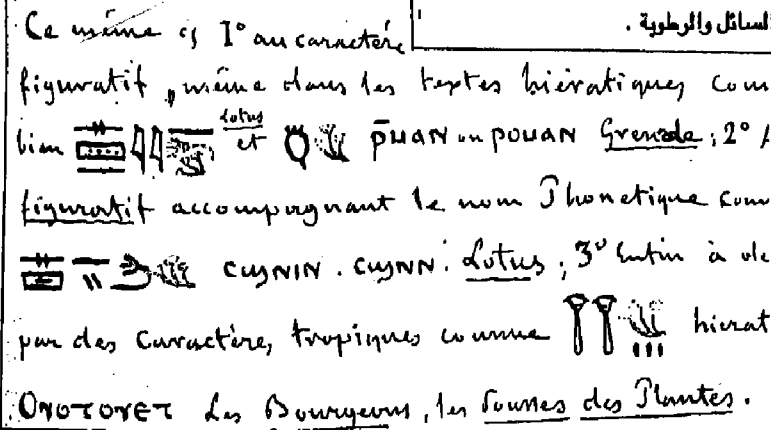 السائل والرطوبة .
Ce même  1° au caractère
figuratif, même dans les textes hiératiques com
bien Lotus et ⲣ̄ⲙⲁⲛ ou ⲣⲟⲙⲁⲛ Grenade; 2°
figuratif accompagnant le nom Phonetique com
Lotus; 3° Enfin à de
par des Caractères tropiques comme hierat
ⲟⲩⲟⲧⲟⲩⲉⲧ Les Bourgeons, les Pousses des Plantes.